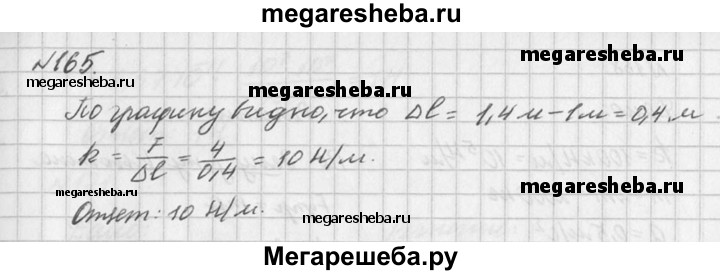 megaresheba.ru
№165.
megaresheba.ru
megaresheba.ru
По графику видно, что Δl = 1,4 м – 1 м = 0,4 м.
megaresheba.ru
k = F/Δl = 4/0,4 = 10 Н/м.
megaresheba.ru
megaresheba.ru
Ответ: 10 Н/м.
megaresheba.ru
Мегарешеба.ру